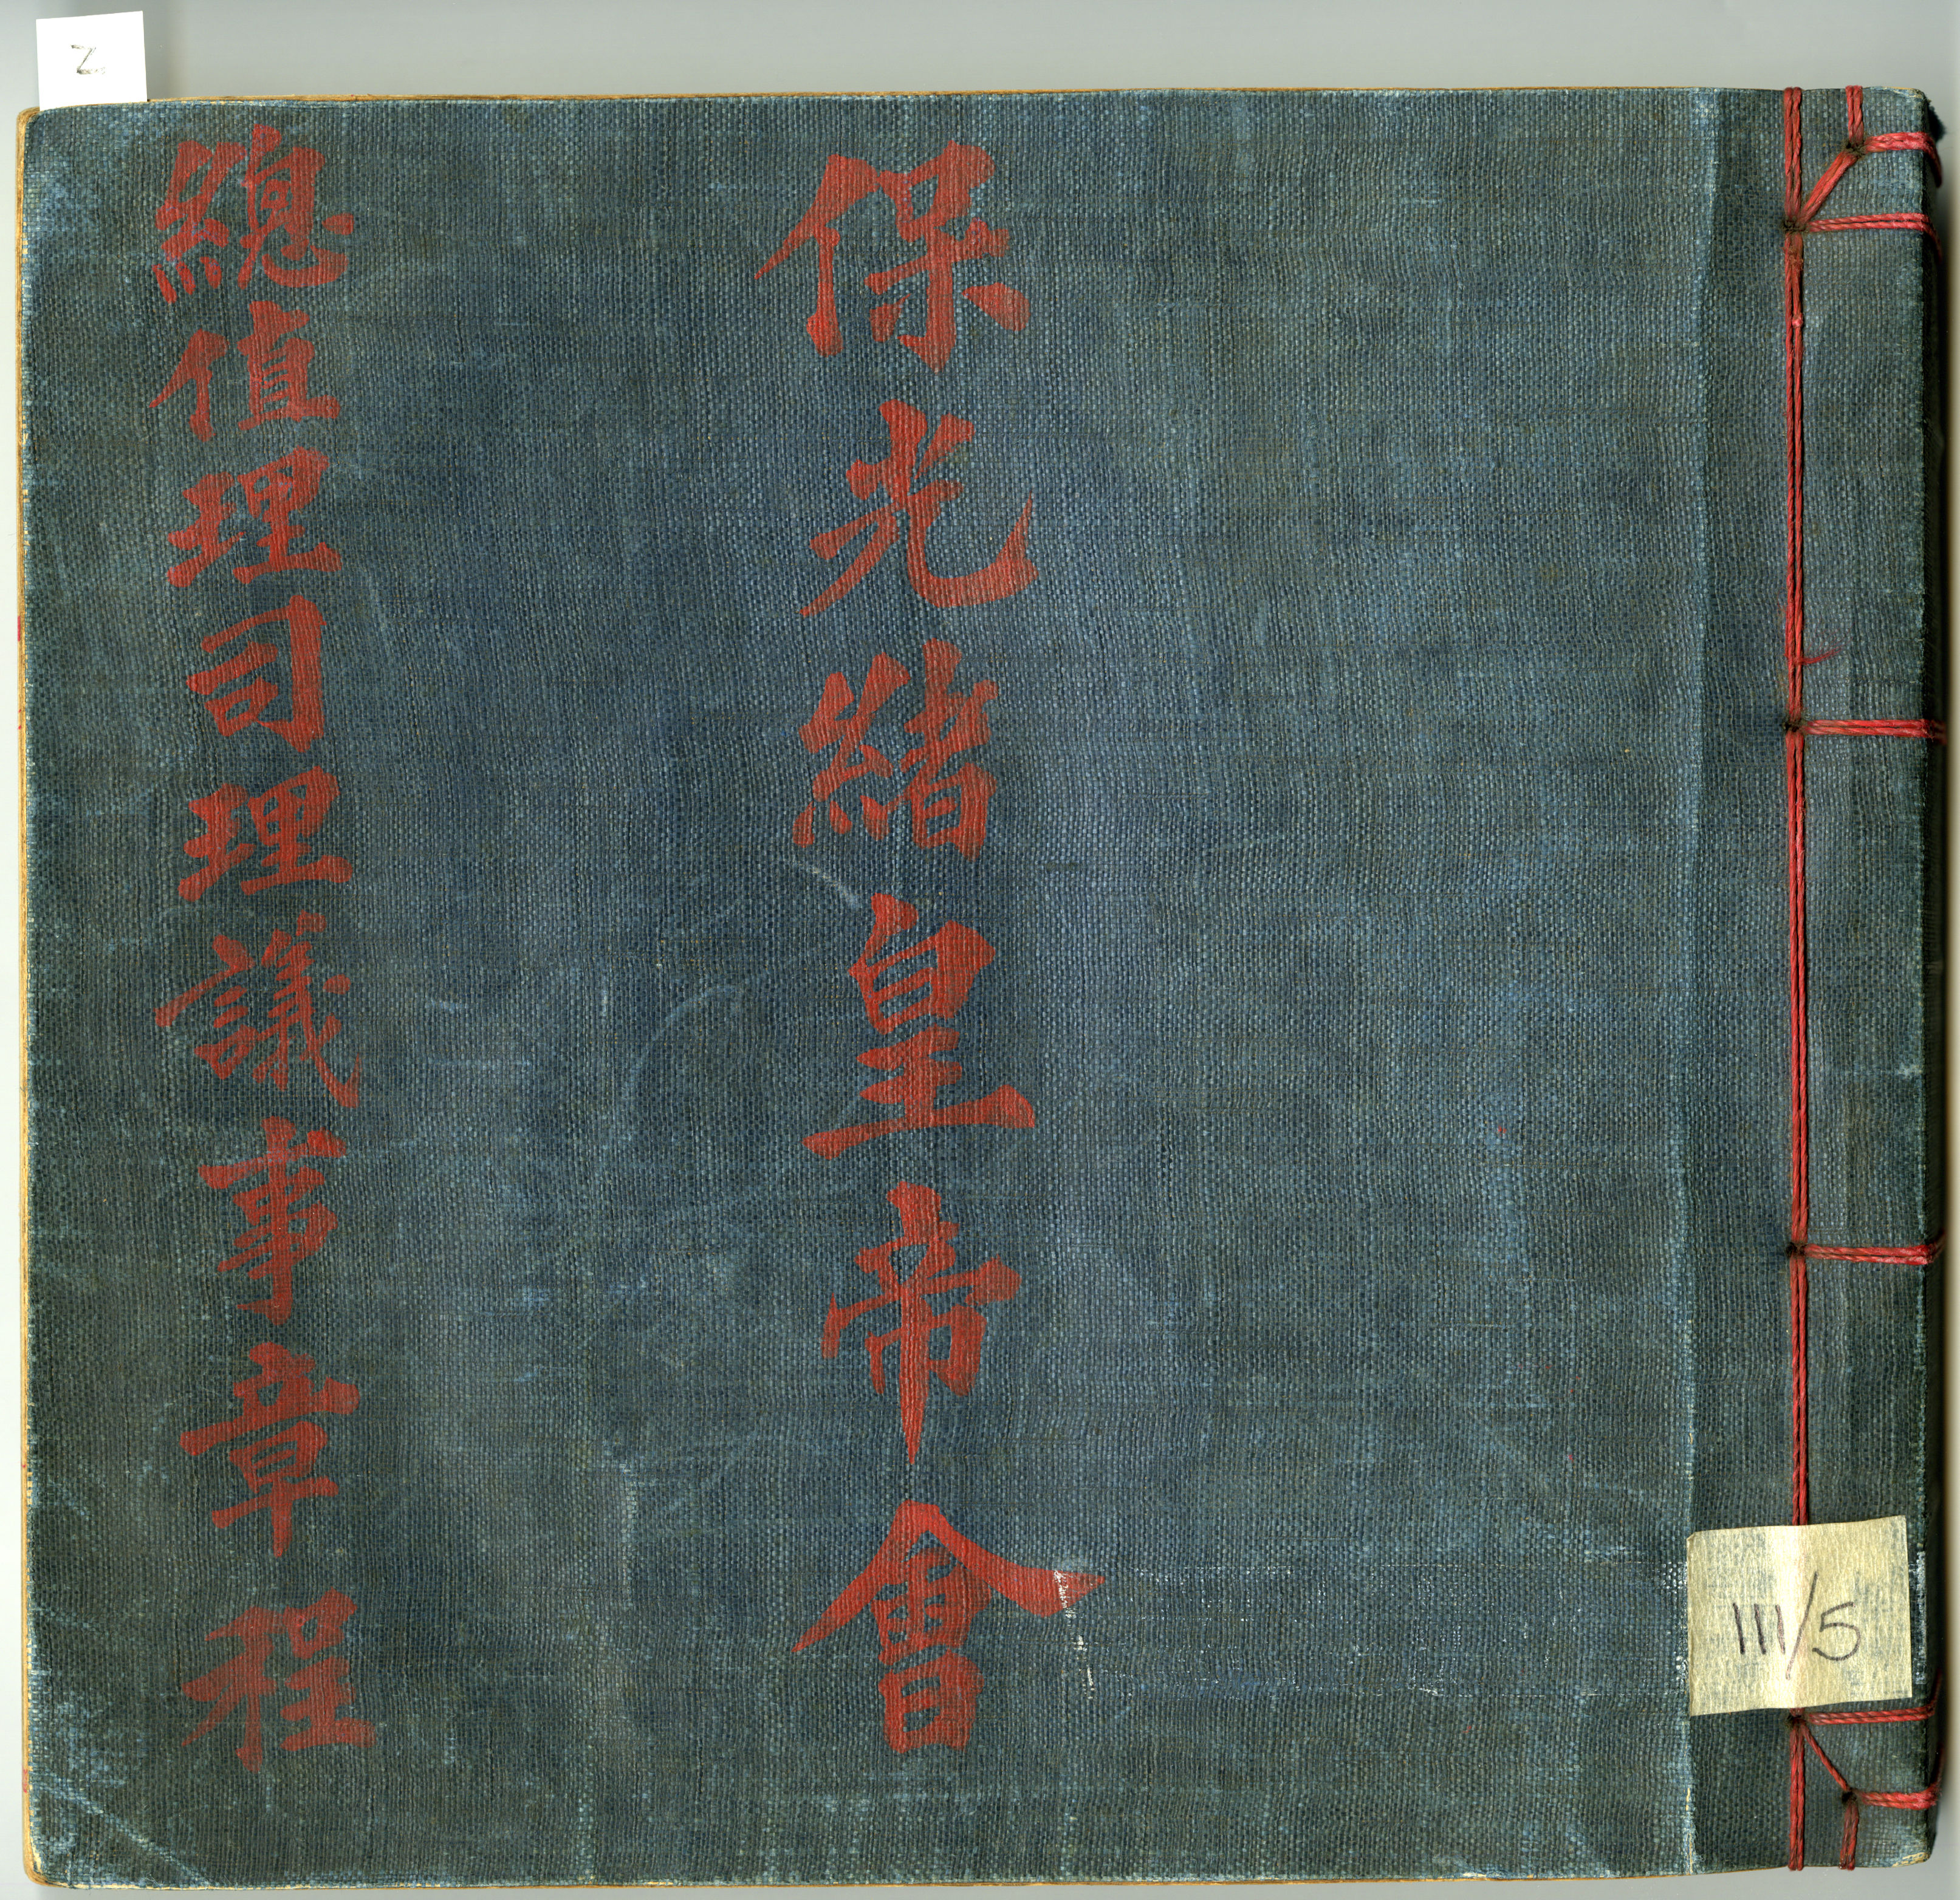 保光緒皇帝會
總值理司理議事章程
111/5
Z